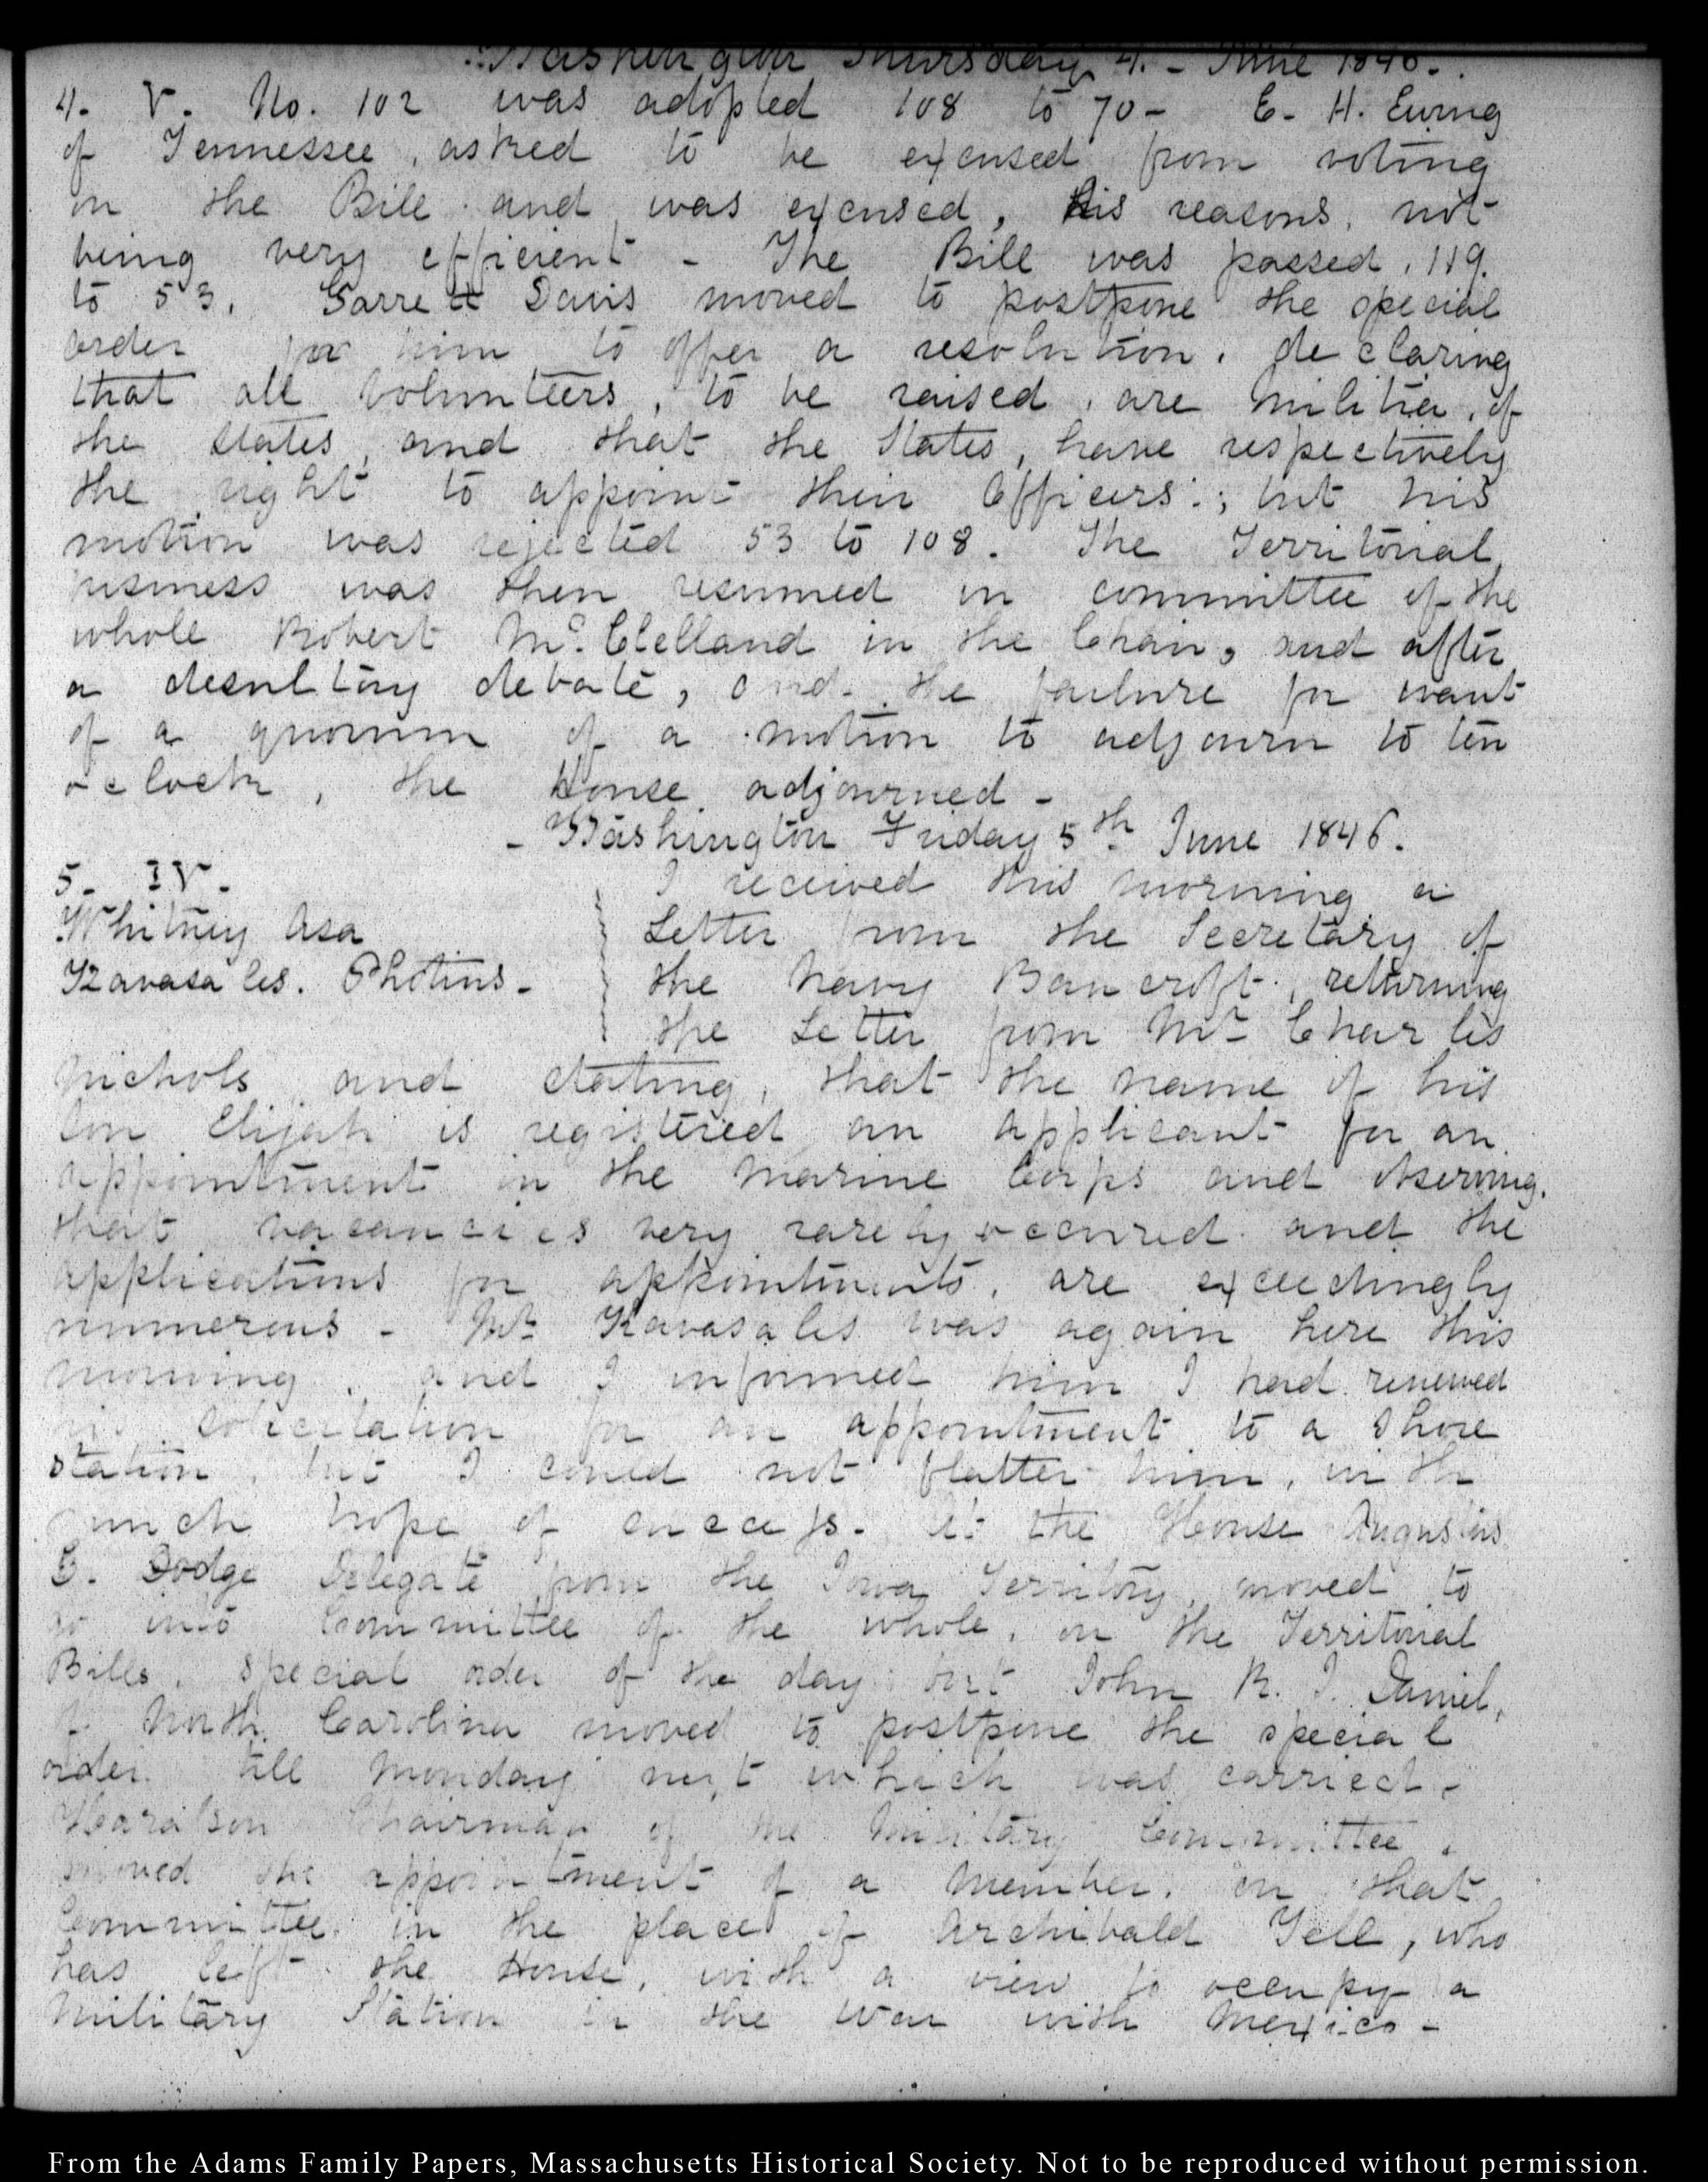 Washington Thursday 4. - June 1846.
4. V. No. 102 was adopted 108 to 70 - E. H. Ewing
of Tennessee, asked to be excused from voting
on the Bill and was excused, his reasons, not
being very efficient - The Bill was passed, 119.
to 53. Garrett Davis moved to postpone the special
order for him to offer a resolution, declaring
that all Volunteers, to be raised, are militia, of
the States, and that the States, have respectively
the right to appoint their Officers; but his
motion was rejected 53 to 108. The Territorial
business was then resumed in committee of the
whole Robert Mc. Clelland in the Chair, and after
a desultory debate, and the failure for want
of a quorum of a motion to adjourn to ten
o clock, the House adjourned -
- Washington Friday 5th June 1846.
5. IV.
Whitney Asa
Kavasales. Photius -
I received this morning a
Letter from the Secretary of
the Navy Bancroft, returning
the Letter from Mr Charles
Nichols and stating, that the name of his
Son Elijah is registered an applicant for an
appointment in the Marine Corps and observing.
that vacancies very rarely occurred and the
applications for appointments, are exceedingly
numerous - Mr Kavasales was again here this
morning, and I informed him I had renewed
his solicitation for an appointment to a Shore
station, but I could not flatter him, with
much hope of success. At the House Augustus
C. Dodge Delegate from the Iowa Territory, moved to
go into Committee of the whole, on the Territorial
Bills, special order of the day but John R. J. Daniel,
of North Carolina moved to postpone the special
order till Monday next which was carried -
Haralson Chairman of the Military Committee,
moved the appointment of a member, on that
Committee in the place of Archibald Yell, who
has left the House, with a view to occupy a
Military Station in the War with Mexico -
From the Adams Family Papers, Massachusetts Historical Society. Not to be reproduced without permission.